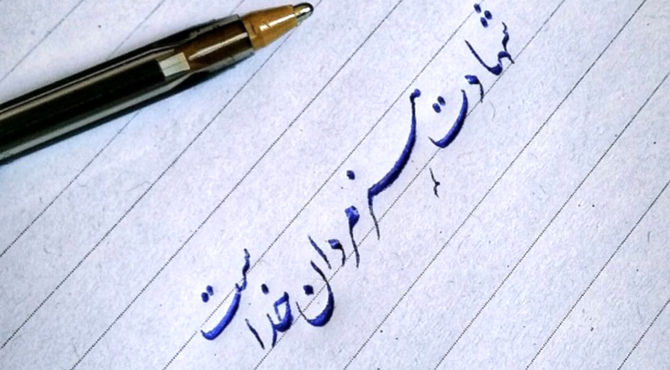 شهادت هنر مردان خداست